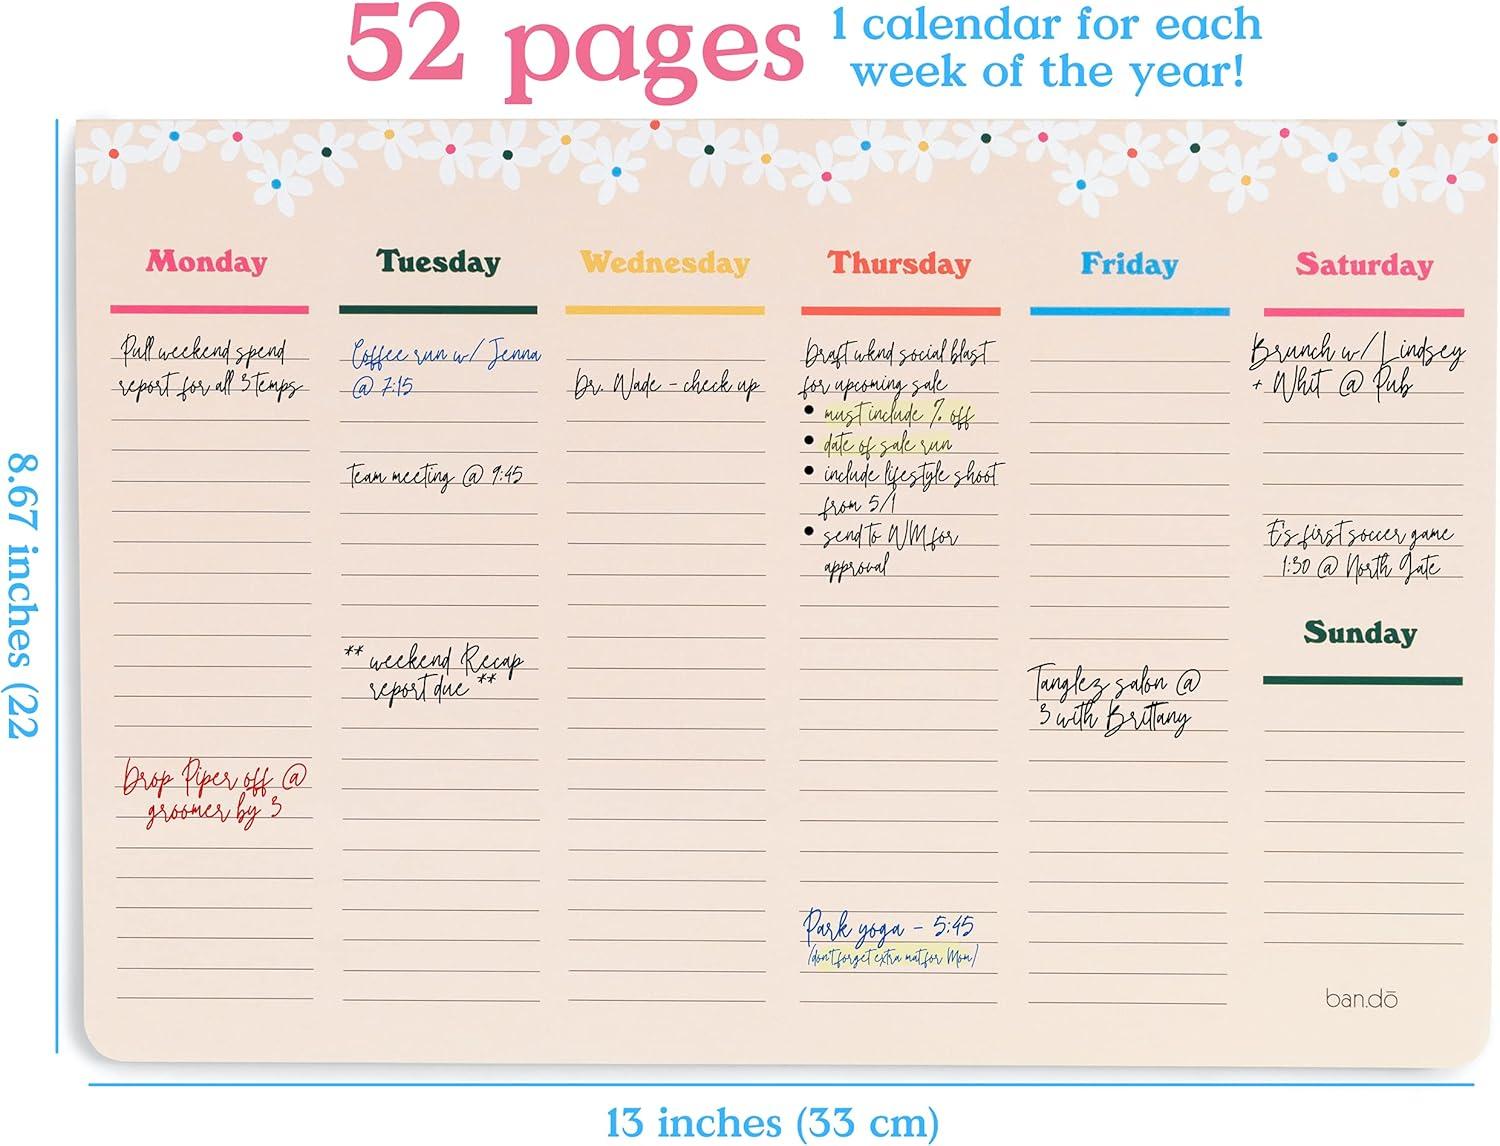 52 pages
1 calendar for each
week of the year!
8.67 inches (22
Monday
Pull weekend spend
report for all 3 temps
Drop Piper off @
groomer by 3
Tuesday
Coffee run w/ Jenna
@ 7:15
Team meeting @ 9:45
** weekend Recap
report due **
Wednesday
Dr. Wade - check up
Thursday
Draft wknd social blast
for upcoming sale
• must include % off
• date of sale run
• include lifestyle shoot
from 5/1
• send to WM for
approval
Park yoga - 5:45
(don't forget extra mat for Mom)
Friday
Tanglez salon @
3 with Brittany
Saturday
Brunch w/ Lindsey
+ Whit @ Pub
E's first soccer game
1:30 @ North Gate
Sunday
ban.dō
13 inches (33 cm)